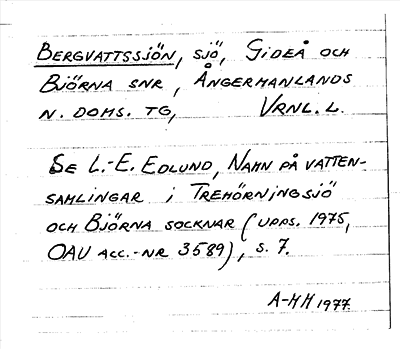 BERGVATTSSJÖN, SJÖ, GIDEÅ OCH
BJÖRNA SNR, ÅNGERMANLANDS
N. DOMS. TG, VRNL. L.
SE L.-E. EDLUND, NAMN PÅ VATTEN-
SAMLINGAR I TREHÖRNINGSJÖ
OCH BJÖRNA SOCKNAR (UPPS. 1975,
OAU ACC.-NR 3589), S. 7.
A-HH 1977